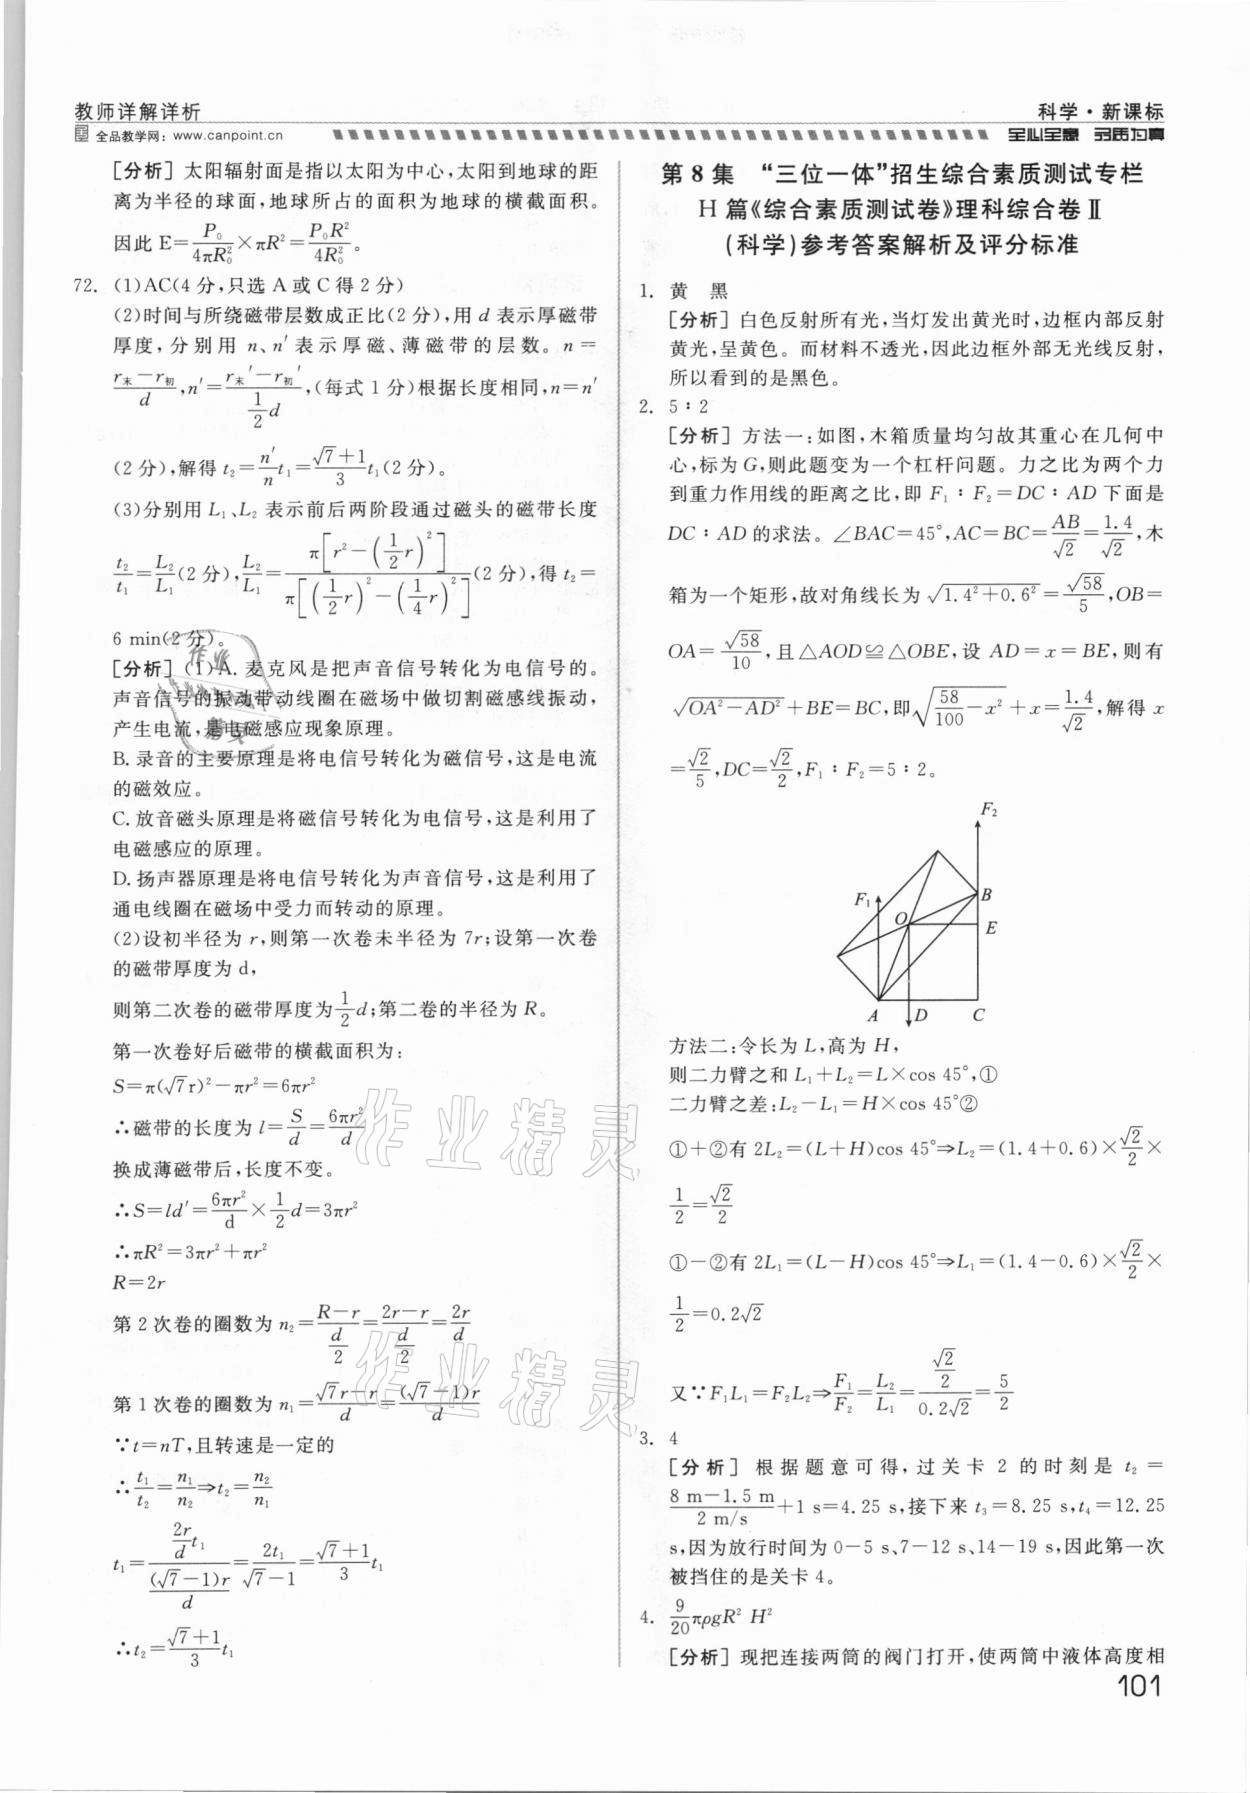 教师详解详析
科学·新课标
全品教学网：www.canpoint.cn
全心全意 孕质为真
[分析] 太阳辐射面是指以太阳为中心，太阳到地球的距
离为半径的球面，地球所占的面积为地球的横截面积。
因此 E=P₀/4πR₀²×πR²=P₀R²/4R₀²。
72. (1)AC(4 分，只选 A 或 C 得 2 分)
(2)时间与所绕磁带层数成正比(2 分)，用 d 表示厚磁带
厚度，分别用 n、n′表示厚磁、薄磁带的层数。n=
(r末-r初)/d，n′=(r末′-r初′)/(1/2 d)，(每式 1 分)根据长度相同，n=n′
(2 分)，解得 t₂=n′/n t₁=(√7+1)/3 t₁(2 分)。
(3)分别用 L₁、L₂ 表示前后两阶段通过磁头的磁带长度
t₂/t₁=L₂/L₁(2 分)，L₂/L₁=π[r²-(1/2 r)²]/π[(1/2 r)²-(1/4 r)²](2 分)，得 t₂=
6 min(2 分)。
[分析] (1)A. 麦克风是把声音信号转化为电信号的。
声音信号的振动带动线圈在磁场中做切割磁感线振动，
产生电流，是电磁感应现象原理。
B. 录音的主要原理是将电信号转化为磁信号，这是电流
的磁效应。
C. 放音磁头原理是将磁信号转化为电信号，这是利用了
电磁感应的原理。
D. 扬声器原理是将电信号转化为声音信号，这是利用了
通电线圈在磁场中受力而转动的原理。
(2)设初半径为 r，则第一次卷末半径为 7r；设第一次卷
的磁带厚度为 d，
则第二次卷的磁带厚度为 1/2 d；第二卷的半径为 R。
第一次卷好后磁带的横截面积为：
S=π(√7r)²-πr²=6πr²
∴磁带的长度为 l=S/d=6πr²/d
换成薄磁带后，长度不变。
∴S=ld′=6πr²/d×1/2 d=3πr²
∴πR²=3πr²+πr²
R=2r
第 2 次卷的圈数为 n₂=(R-r)/(d/2)=(2r-r)/(d/2)=2r/d
第 1 次卷的圈数为 n₁=(√7r-r)/d=(√7-1)r/d
∵t=nT，且转速是一定的
∴t₁/t₂=n₁/n₂⇒t₂=n₂/n₁
t₁=(2r/d t₁)/((√7-1)r/d)=2t₁/(√7-1)=(√7+1)/3 t₁
∴t₂=(√7+1)/3 t₁
第 8 集 “三位一体”招生综合素质测试专栏
H 篇《综合素质测试卷》理科综合卷Ⅱ
(科学)参考答案解析及评分标准
1. 黄 黑
[分析] 白色反射所有光，当灯发出黄光时，边框内部反射
黄光，呈黄色。而材料不透光，因此边框外部无光线反射，
所以看到的是黑色。
2. 5∶2
[分析] 方法一：如图，木箱质量均匀故其重心在几何中
心，标为 G，则此题变为一个杠杆问题。力之比为两个力
到重力作用线的距离之比，即 F₁∶F₂=DC∶AD 下面是
DC∶AD 的求法。∠BAC=45°，AC=BC=AB/√2=1.4/√2，木
箱为一个矩形，故对角线长为√(1.4²+0.6²)=√58/5，OB=
OA=√58/10，且△AOD≌△OBE，设 AD=x=BE，则有
√(OA²-AD²)+BE=BC，即√(58/100-x²)+x=1.4/√2，解得 x
=√2/5，DC=√2/2，F₁∶F₂=5∶2。
F₂
F₁
B
O
E
A
D
C
方法二：令长为 L，高为 H，
则二力臂之和 L₁+L₂=L×cos 45°，①
二力臂之差：L₂-L₁=H×cos 45°②
①+②有 2L₂=(L+H)cos 45°⇒L₂=(1.4+0.6)×√2/2×
1/2=√2/2
①-②有 2L₁=(L-H)cos 45°⇒L₁=(1.4-0.6)×√2/2×
1/2=0.2√2
又∵F₁L₁=F₂L₂⇒F₁/F₂=L₂/L₁=(√2/2)/0.2√2=5/2
3. 4
[分析] 根据题意可得，过关卡 2 的时刻是 t₂=
(8 m-1.5 m)/(2 m/s)+1 s=4.25 s，接下来 t₃=8.25 s，t₄=12.25
s，因为放行时间为 0-5 s、7-12 s、14-19 s，因此第一次
被挡住的是关卡 4。
4. 9/20 πρgR² H²
[分析] 现把连接两筒的阀门打开，使两筒中液体高度相
101
作业精灵
作业精灵
作业精灵